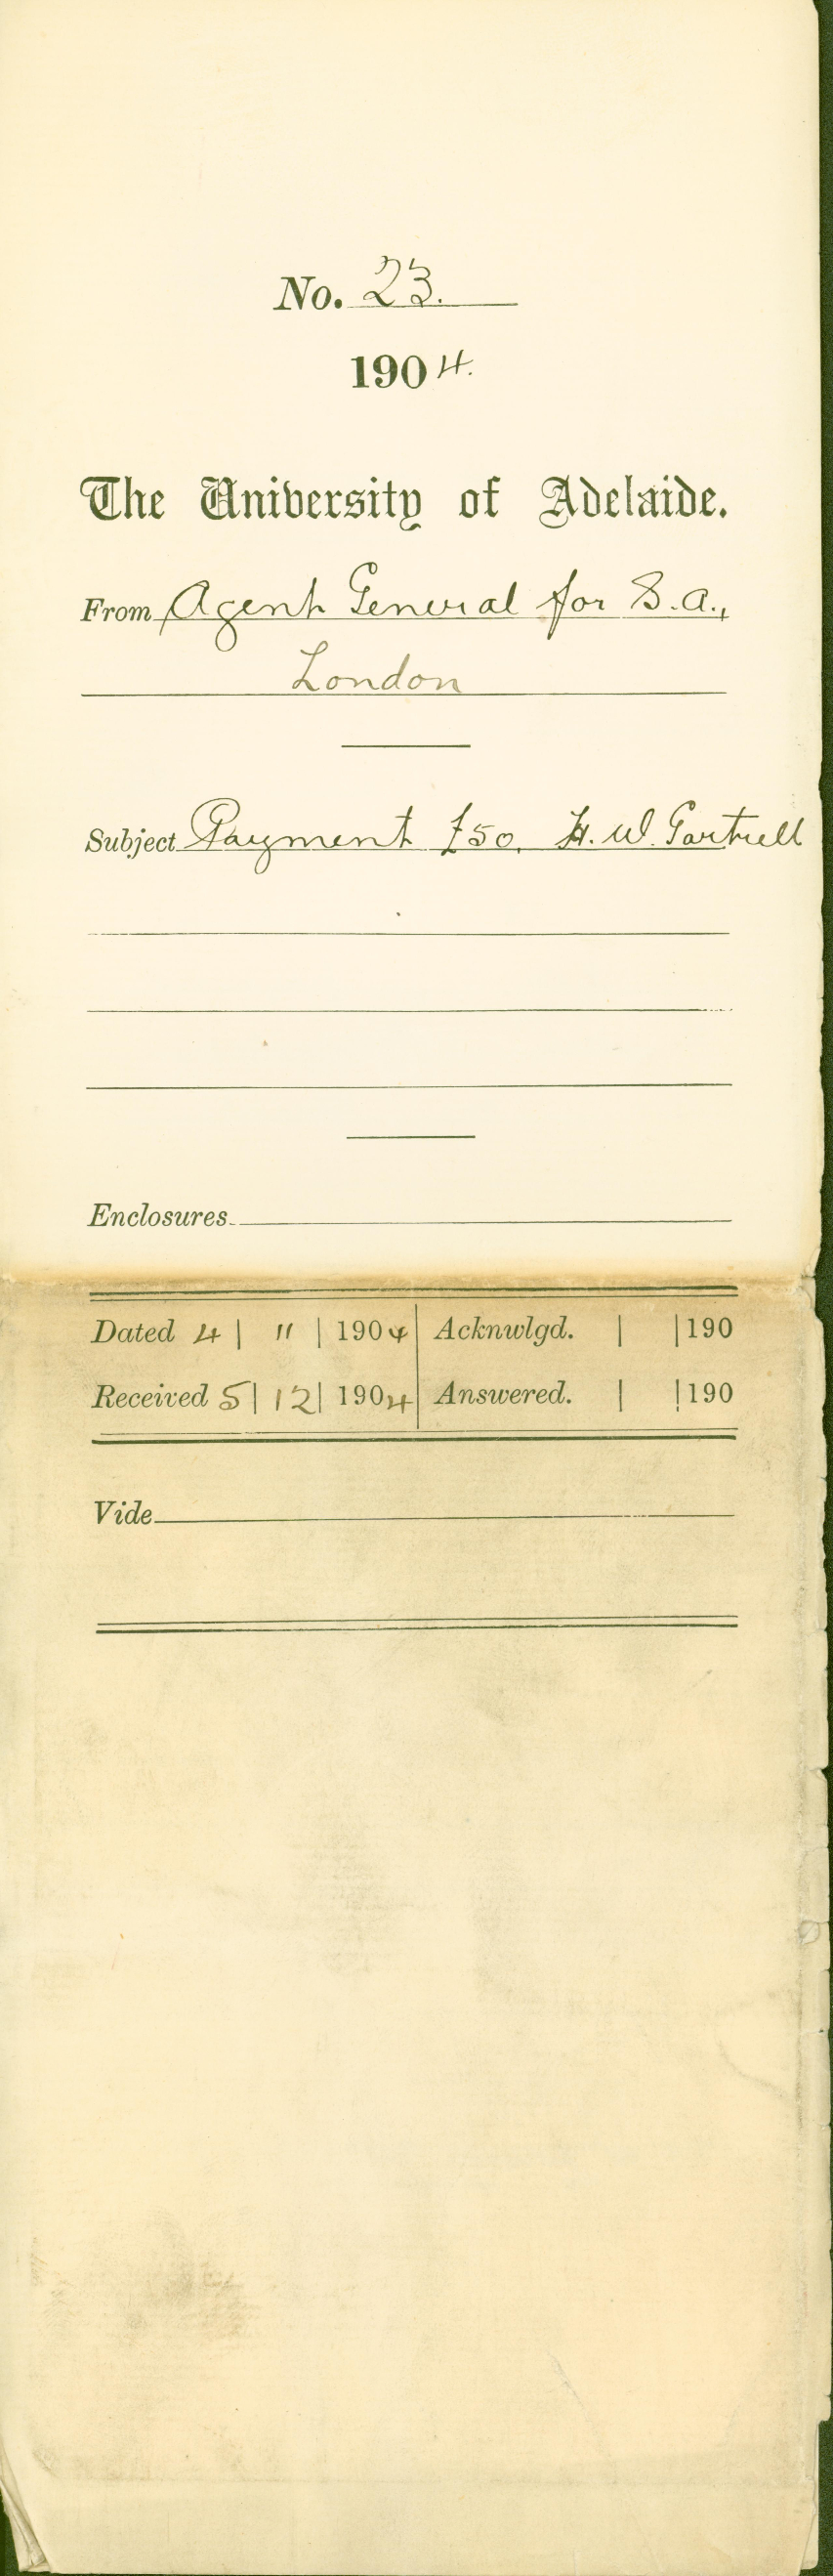 No. 23.
1904.
The University of Adelaide.
From Agent General for S.A.,
London
Subject Payment £50. H. W. Gartrell
Enclosures
Dated 4 | 11 | 1904 Acknwlgd. | | 190
Received 5 | 12 | 1904 Answered. | | 190
Vide